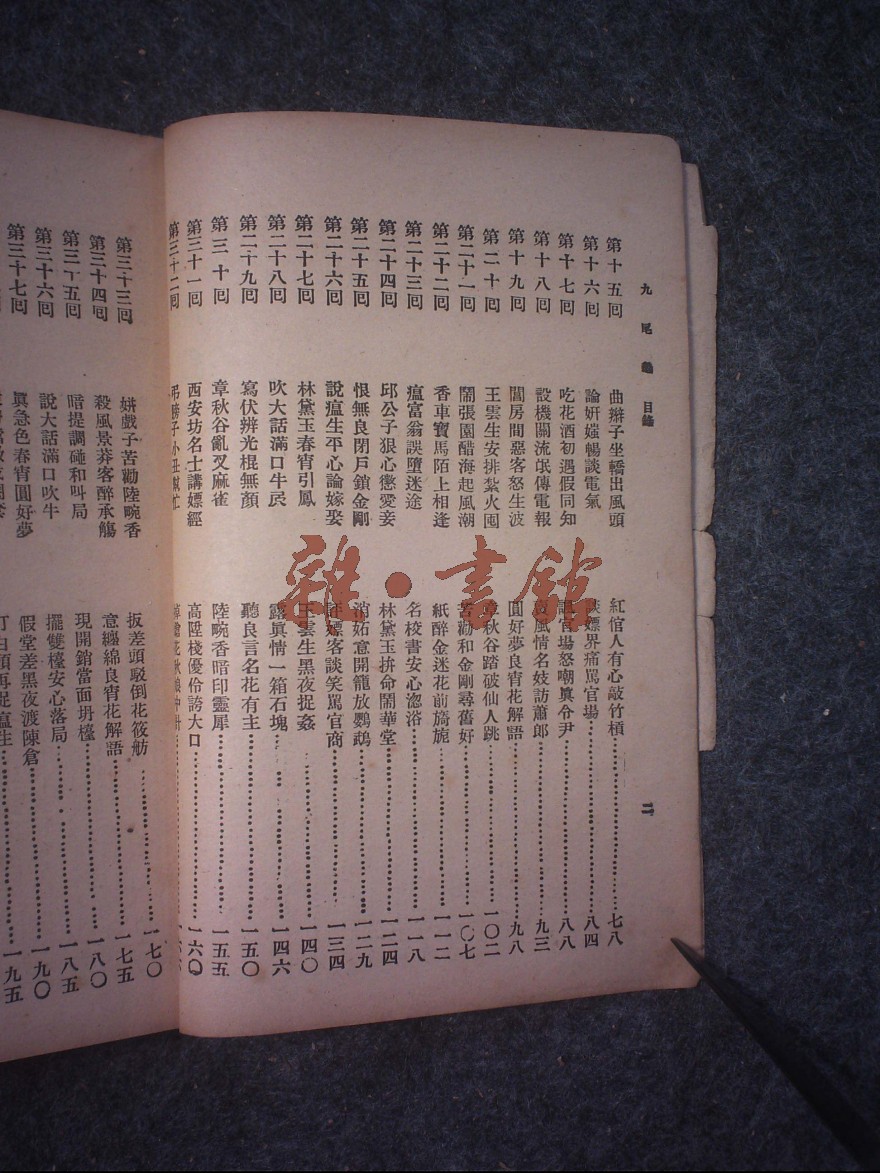 九尾龜 目錄 二
第十五回 曲辮子坐轎出風頭 紅倌人有心敲竹槓 七八
第十六回 論妍媸暢談電氣 談嫖界痛罵官場 八四
第十七回 吃花酒初遇假同知 官場怒嘲眞令尹 八八
第十八回 設機關流氓傳電報 風情名妓訪蕭郎 九三
第十九回 鬧房間惡客怒生波 圓好夢良宵花解語 九八
第二十回 王雲生安排紮火囤 章秋谷踏破仙人跳 一〇二
第二十一回 鬧張園醋海起風潮 苦勸和金剛尋舊好 一〇七
第二十二回 香車寶馬陌上相逢 紙醉金迷花前旖旎 一一二
第二十三回 瘟富翁誤墮迷途 名校書安心淴浴 一一八
第二十四回 邱公子狠心懲愛妾 林黛玉拚命鬧華堂 一二四
第二十五回 恨無良閉戶鎖金剛 消妬意開籠放鸚鵡 一二九
第二十六回 說瘟生平心論嫁娶 評嫖客談笑罵官商 一三四
第二十七回 林黛玉春宵引鳳 王雲生黑夜捉姦 一四〇
第二十八回 吹大話滿口牛屄 露眞情一箱石塊 一四六
第二十九回 寫伏辨光棍無顏 聽良言名花有主 一五〇
第三十回 章秋谷亂叉麻雀 陸畹香暗印靈犀 一五五
第三十一回 西安坊名士講嫖經 高陞棧優伶誇大口 一六〇
第三十二回 弔膀子小丑幫忙
第三十三回 姘戲子苦勸陸畹香 扳差頭駁倒花筱舫 一七〇
第三十四回 殺風景莽客醉承觴 意纏綿良宵花解語 一七五
第三十五回 暗提調碰和叫局 現開銷當面坍檯 一八〇
第三十六回 說大話滿口吹牛 擺雙檯安心落局 一八五
第三十七回 眞急色春宵圓好夢 假堂差黑夜渡陳倉 一九〇
一九五
雜·書館